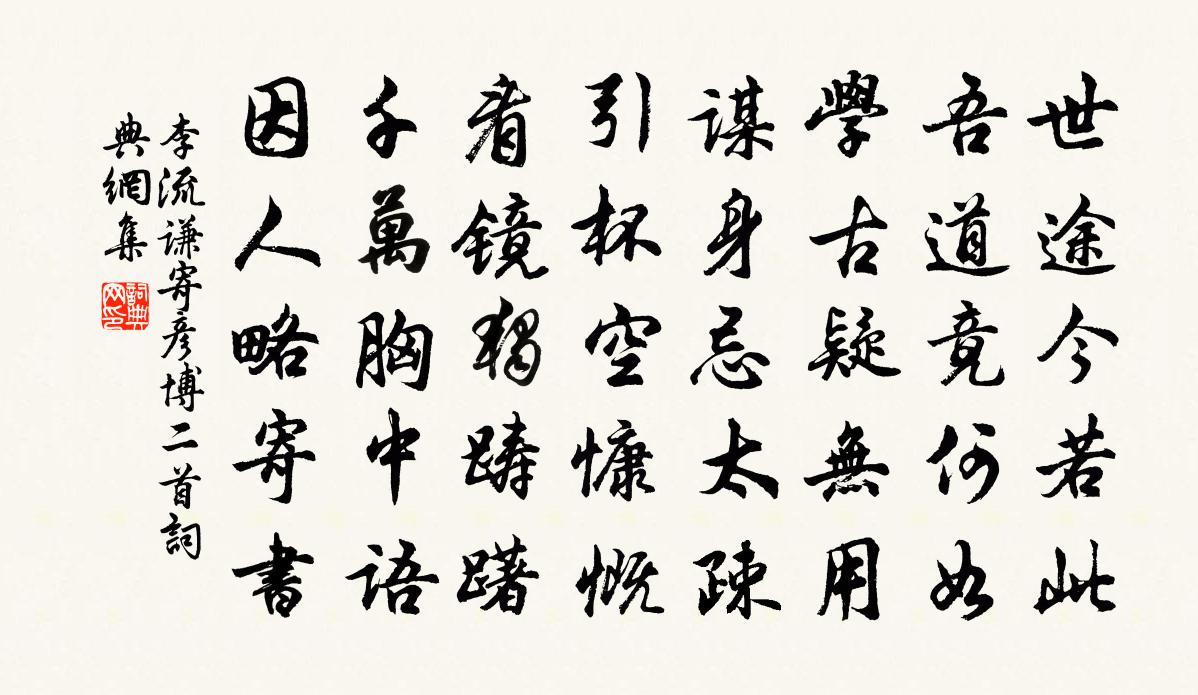 世途今若此
吾道竟何如
學古疑無用
謀身忌太疎
引杯空慷慨
看鏡獨躊躇
千萬胸中語
因人略寄書
李流謙寄彥博二首詞
典網集
詞典網印